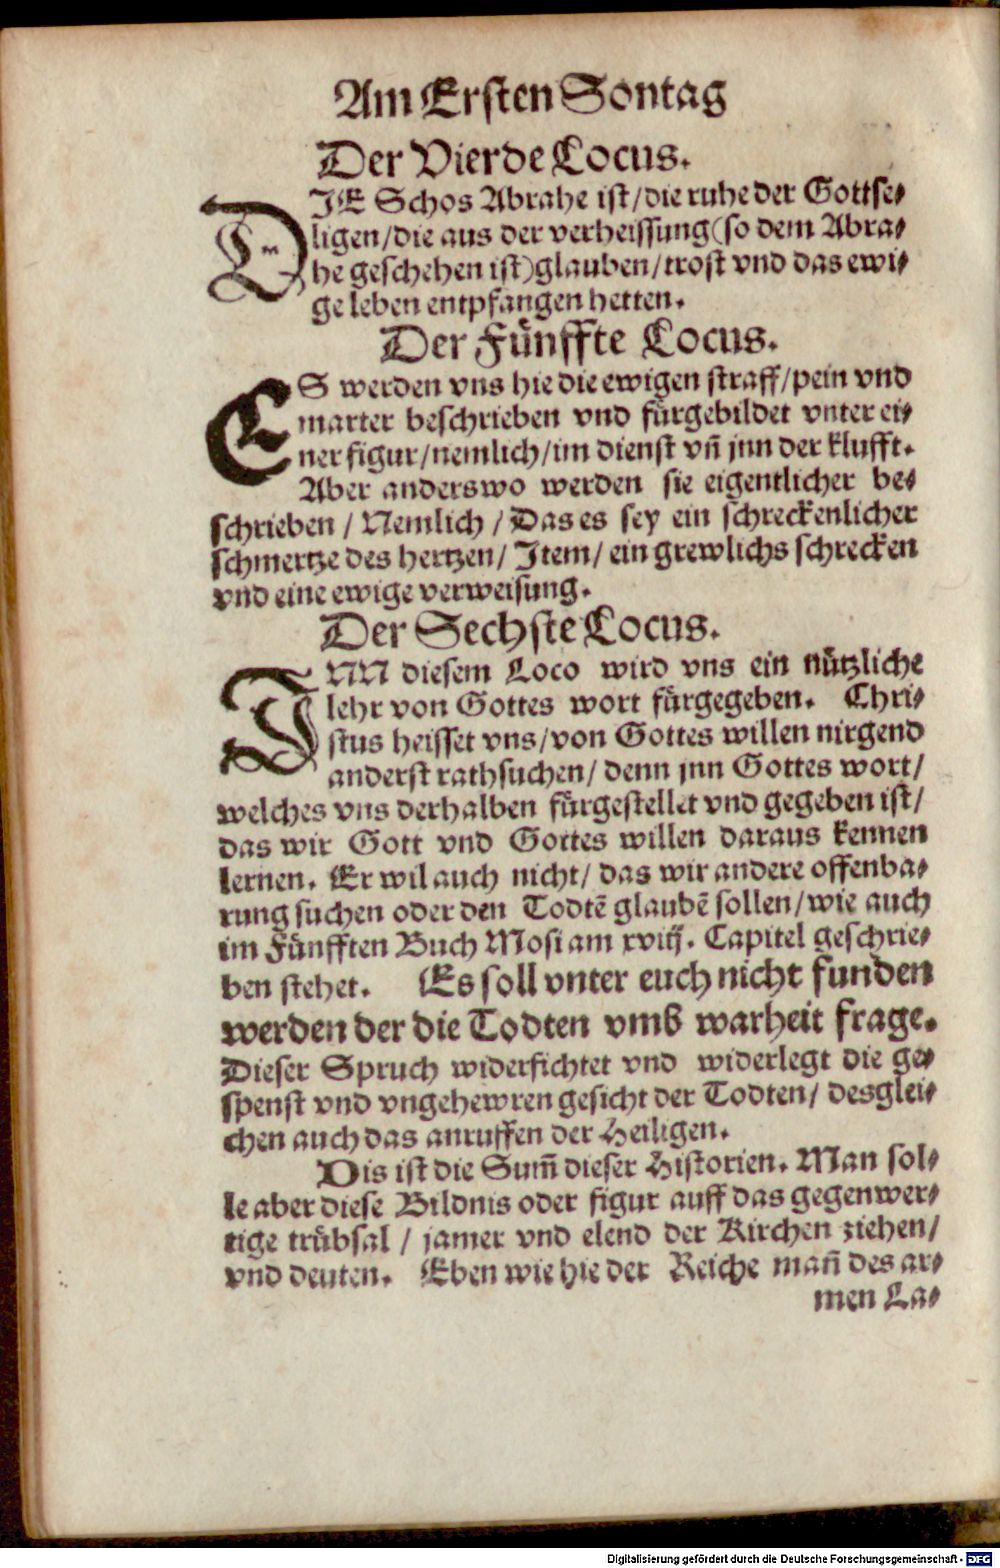 Am Ersten Sontag
Der Vierde Locus.
DIE Schos Abrahe ist/die ruhe der Gottse-
ligen/die aus der verheissung(so dem Abra-
he geschehen ist)glauben/trost vnd das ewi-
ge leben entpfangen hetten.
Der Fünffte Locus.
ES werden vns hie die ewigen straff/pein vnd
marter beschrieben vnd fürgebildet vnter ei-
ner figur/nemlich/im dienst vñ jnn der klufft.
Aber anderswo werden sie eigentlicher be-
schrieben / Nemlich / Das es sey ein schrecklicher
schmertze des hertzen/ Item/ ein grewlichs schrecken
vnd eine ewige verweisung.
Der Sechste Locus.
INN diesem Loco wird vns ein nützliche
lehr von Gottes wort fürgegeben. Chri-
stus heisset vns/von Gottes willen nirgend
anderst rathsuchen/ denn jnn Gottes wort/
welches vns derhalben fürgestellet vnd gegeben ist/
das wir Gott vnd Gottes willen daraus kennen
lernen. Er wil auch nicht/ das wir andere offenba-
rung suchen oder den Todtẽ glaubẽ sollen/wie auch
im Fünfften Buch Mosi am xviij. Capitel geschrie-
ben stehet. Es soll vnter euch nicht funden
werden der die Todten vmb warheit frage.
Dieser Spruch widerfichtet vnd widerlegt die ge-
spenst vnd vngehewren gesicht der Todten/ desglei-
chen auch das anruffen der Heiligen.
Dis ist die Sum̃ dieser Historien. Man sol-
le aber diese Bildnis oder figur auff das gegenwer-
tige trübsal / jamer vnd elend der Kirchen ziehen/
vnd deuten. Eben wie hie der Reiche mañ des ar-
men La-
Digitalisierung gefördert durch die Deutsche Forschungsgemeinschaft - DFG